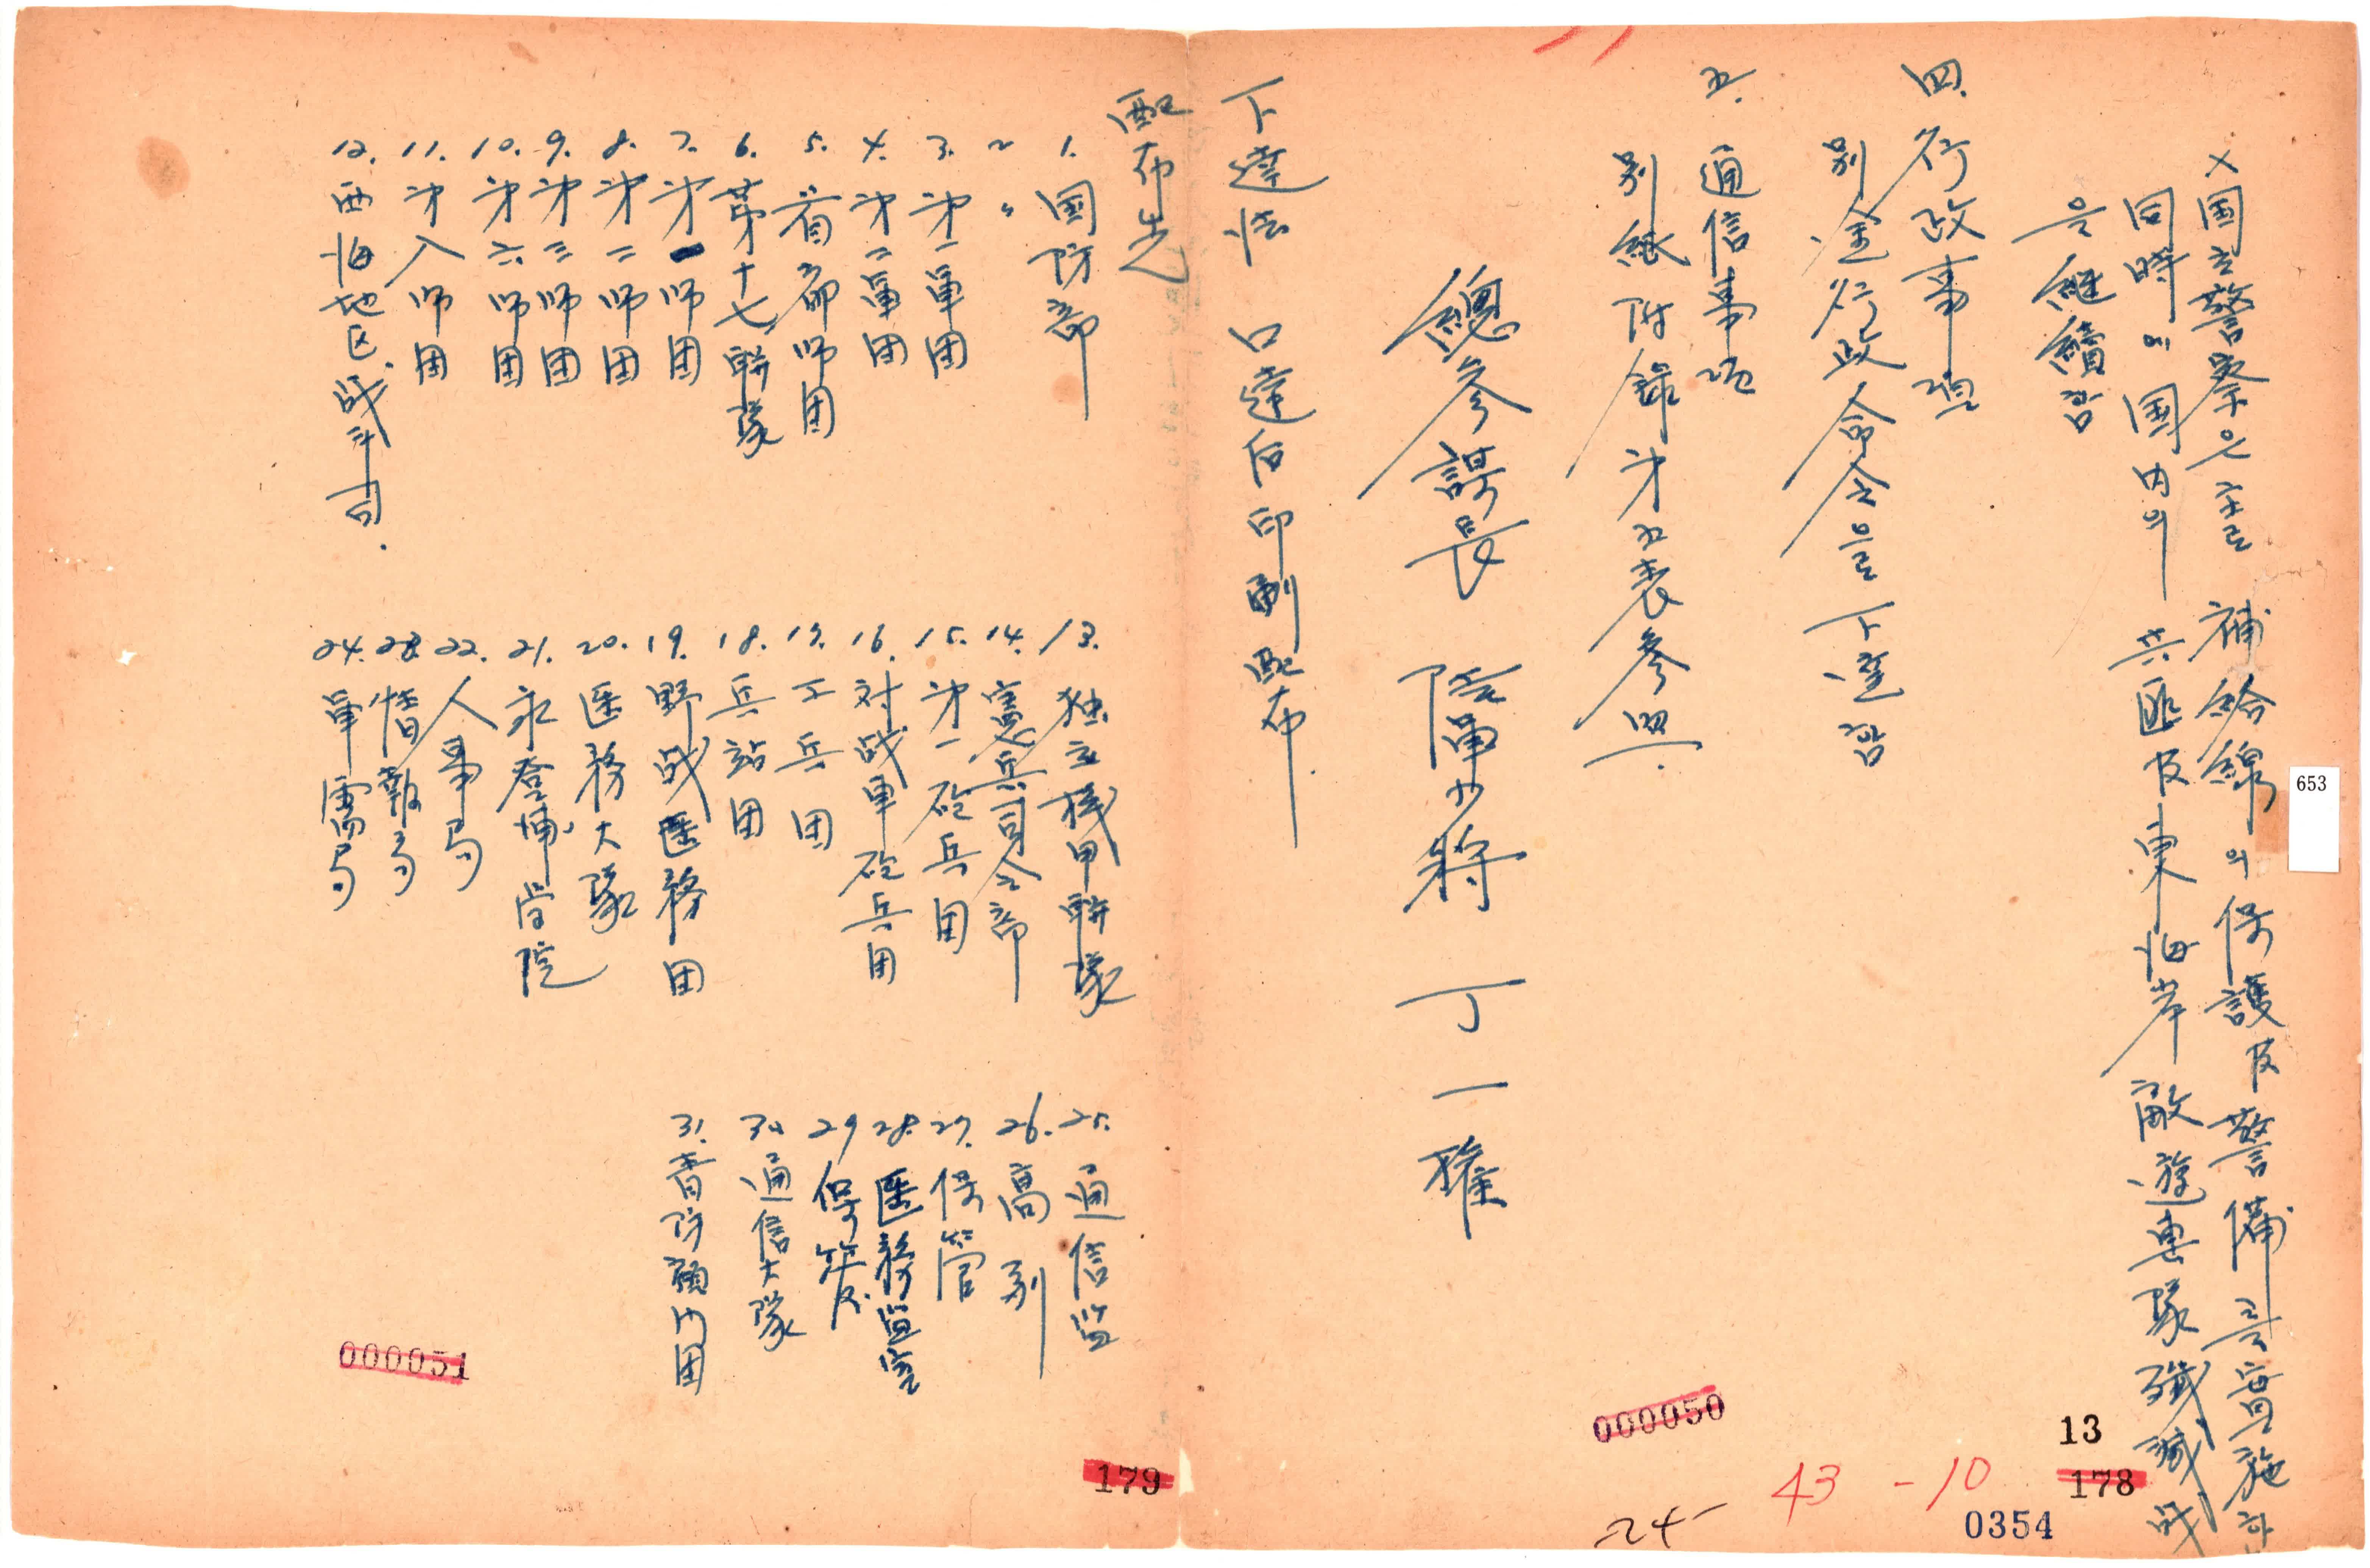 ×国立警察은 主로 補給線의 保護及警備를 實施하
同時에 国内의 共匪及東海岸敵遊擊隊殲滅战
을 継續함
四. 行政事項
別途行政命令을 下達함
五. 通信事項
別紙附錄第五表參照.
總參謀長 陸軍少將 丁一權
下達法 口達后印刷配布.
配布先
1. 国防部
2 〃
3. 第一軍団
4. 第二軍団
5. 首都师団
6. 第十七聯隊
7. 第一师団
8. 第二师団
9. 第三师団
10. 第六师団
11. 第八师団
12. 西海地区战斗司.
13. 独立機甲聯隊
14. 憲兵司令部
15. 第一砲兵団
16. 対战車砲兵団
17. 工兵団
18. 兵站団
19. 野战医務団
20. 医務大隊
21. 永登浦学院
22. 人事局
23. 情報局
24. 軍需局
25. 通信監
26. 高副
27. 保管
28. 医務監室
29
30 通信大隊
31. 青防顧问団
653
000051
179
000050
13
178
43 - 10
-24-
0354